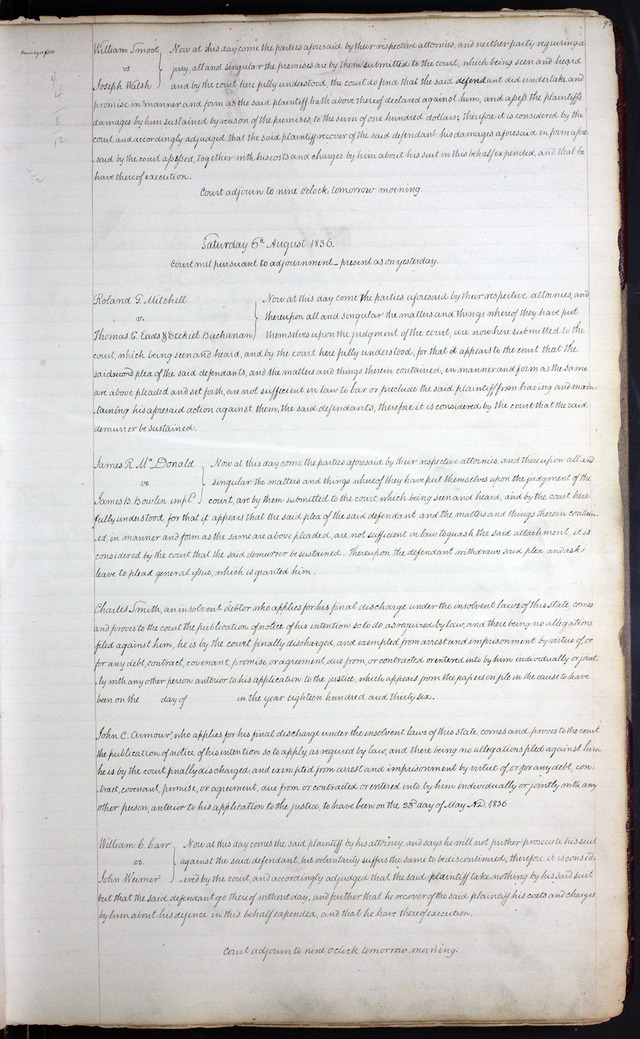 William Smoot } Now at this day come the parties aforesaid by their respective attornies, and neither party requiring a
vs jury, all and singular the premises are by them submitted to the court, which being seen and heard
Joseph Walsh and by the court here fully understood, the court do find that the said defendant did undertake and
promise in manner and form as the said plaintiff hath above thereof declared against him, and assess the plaintiffs
damages by him sustained by reason of the premises, to the sum of one hundred dollars; therefore it is considered by the
court, and accordingly adjudged that the said plaintiff recover of the said defendant his damages aforesaid in form afore
said by the court assessed, together with his costs and charges by him about his suit in this behalf expended, and that he
have thereof execution.
Court adjourn to nine o'clock tomorrow morning.
Saturday 6th August 1836.
Court met pursuant to adjournment – present as on yesterday.
Roland G. Mitchell } Now at this day come the parties aforesaid by their respective attornies, and
v. thereupon all and singular the matters and things whereof they have put
Thomas C. Eads & Ezekiel Buchanan themselves upon the judgment of the court, are now here submitted to the
court, which being seen and heard, and by the court here fully understood, for that it appears to the court that the
said second plea of the said defendants, and the matters and things therein contained, in manner and form as the same
are above pleaded and set forth, are not sufficient in law to bar or preclude the said plaintiff from having and main
taining his aforesaid action against them, the said defendants, therefore it is considered by the court that the said
demurrer be sustained.
James R. McDonald } Now at this day come the parties aforesaid by their respective attornies, and thereupon all and
vs singular the matters and things whereof they have put themselves upon the judgment of the
James B. Bowlin impl. court, are by them submitted to the court, which being seen and heard, and by the court here
fully understood, for that it appears that the said plea of the said defendant and the matters and things therein contain
ed, in manner and form as the same are above pleaded, are not sufficient in law to quash the said attachment, it is
considered by the court that the said demurrer be sustained. Thereupon the defendant withdraws said plea, and asks
leave to plead general issue, which is granted him.
Charles Smith, an insolvent debtor who applies for his final discharge under the insolvent laws of this state, comes
and proves to the court the publication of notice of his intention so to do as required by law, and there being no allegations
filed against him, he is by the court finally discharged, and exempted from arrest and imprisonment by virtue of, or
for any debt, contract, covenant, promise, or agreement, due from, or contracted or entered into by him individually or joint
ly with any other person anterior to his application to the justice, which appears from the papers on file in the cause to have
been on the day of in the year eighteen hundred and thirty six.
John C. Armour, who applies for his final discharge under the insolvent laws of this state, comes and proves to the court
the publication of notice of his intention so to apply, as required by law, and there being no allegations filed against him
he is by the court finally discharged, and exempted from arrest and imprisonment by virtue of, or for any debt, con
tract, covenant, promise, or agreement, due from or contracted or entered into by him individually or jointly with any
other person, anterior to his application to the justice, to have been on the 28th day of May A.D. 1836
William C. Carr } Now at this day comes the said plaintiff by his attorney, and says he will not further prosecute his suit
vs. against the said defendant, but voluntarily suffers the same to be discontinued; therefore it is consid
John Weimer ered by the court, and accordingly adjudged that the said plaintiff take nothing by his said suit
but that the said defendant go thereof without day, and further that he recover of the said plaintiff his costs and charges
by him about his defence in this behalf expended, and that he have thereof execution.
Court adjourn to nine o'clock tomorrow morning.